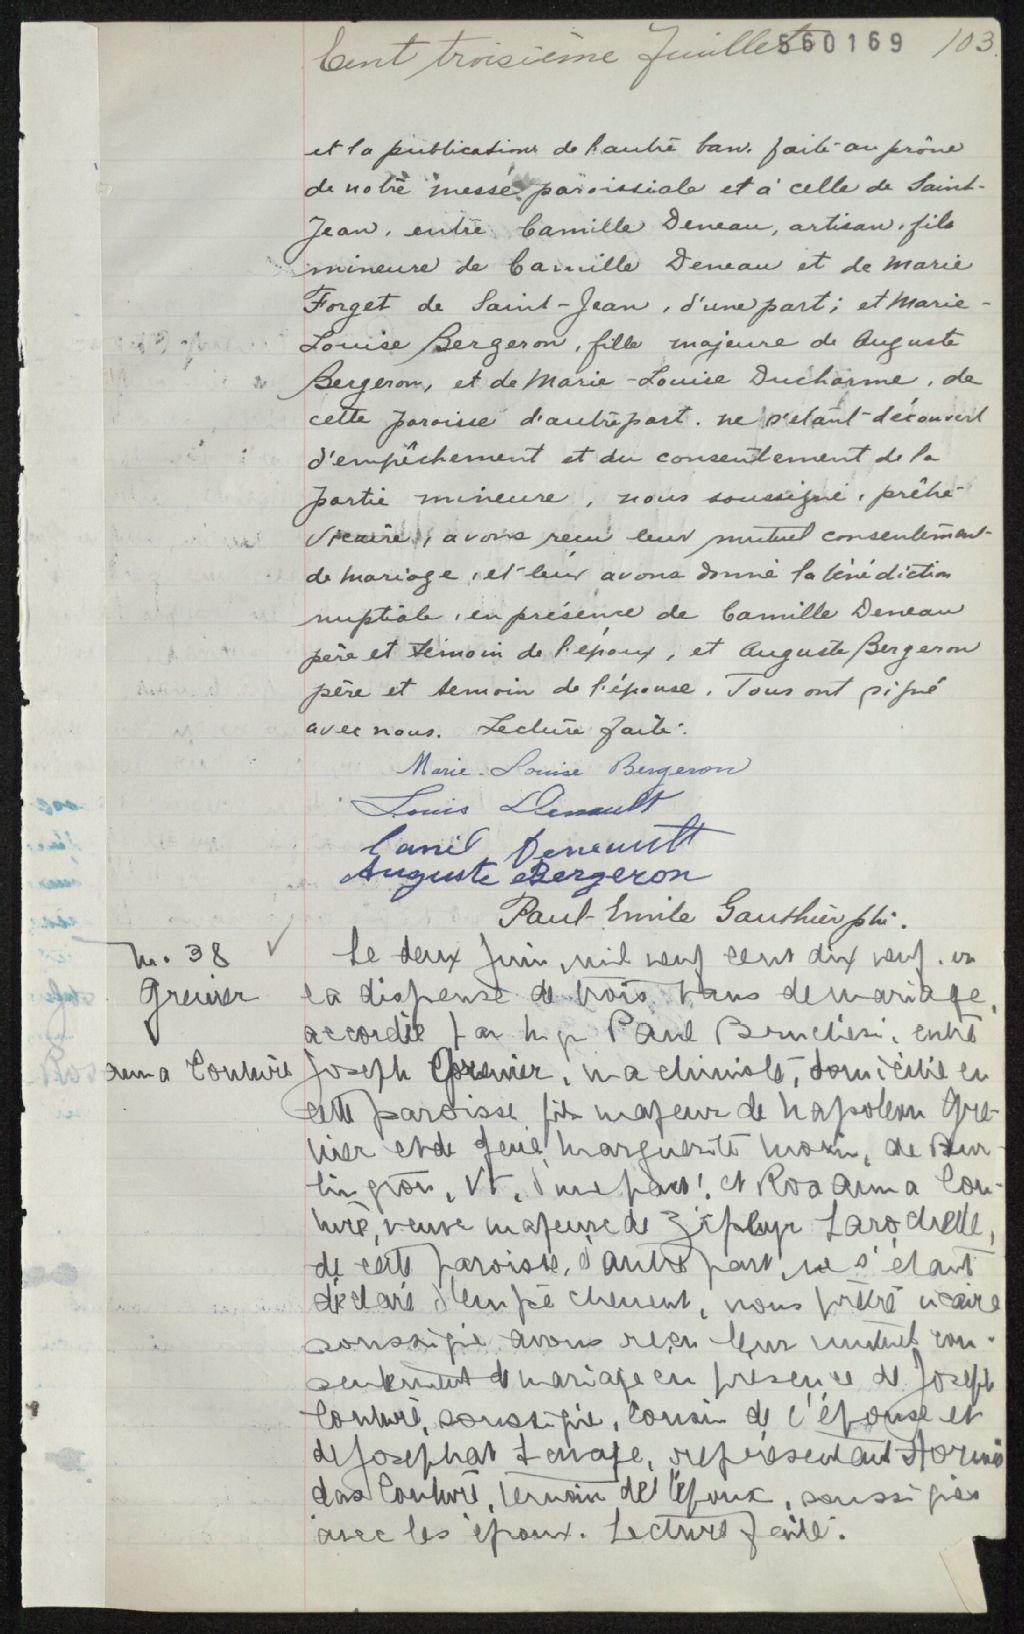 Cent troisième feuillet 560169 103.
et la publication de l'autre ban. faite au prône
de notre messe paroissiale et à celle de Saint-
Jean, entre Camille Deneau, artisan, fils
mineure de Camille Deneau et de Marie
Forget de Saint-Jean, d'une part; et Marie-
Louise Bergeron, fille majeure de Auguste
Bergeron, et de Marie-Louise Ducharme, de
cette paroisse d'autre part. ne s'étant découvert
d'empêchement et du consentement de la
partie mineure, nous soussigné, prêtre
vicaire, avons reçu leur mutuel consentement
de mariage, et leur avons donné la bénédiction
nuptiale, en présence de Camille Deneau
père et témoin de l'époux, et Auguste Bergeron
père et temoin de l'épouse. Tous ont signé
avec nous. Lecture faite.
Marie-Louise Bergeron
Louis Denault
Camil Deneault
Auguste Bergeron
Paul-Emile Gauthier ptr.
M. 38
Grenier
Anna Couture
Le deux Juin, mil neuf cent dix neuf. vu
la dispense de trois bans de mariage,
accordée par Mgr Paul Bruchési, entre
Joseph Grenier, machiniste, domicilié en
cette paroisse fils majeur de Napoléon Gre-
nier et de feue Marguerite Morin, de Bur-
lington, Vt, d'une part; et Rosanna Cou-
ture, veuve majeure de Zéphyr Larochelle,
de cette paroisse, d'autre part, ne s'étant
déclaré d'empêchement, nous prêtre vicaire
soussigné avons reçu leur mutuel con-
sentement de mariage en présence de Joseph
Couture, soussigné, cousin de l'épouse et
de Josephat représentant Hormis
das Couture, témoin de l'époux, soussignés
avec les époux. Lecture faite.